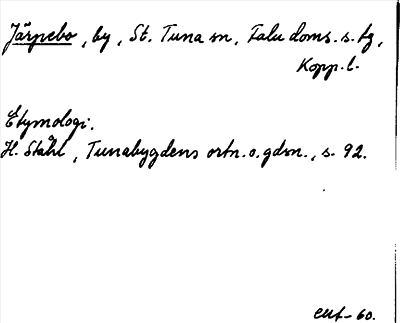 Järpebo, by, St. Tuna sn, Falu doms. s. tg,
Kopp. l.
Etymologi.
H. Ståhl, Tunabygdens ortn. o. gdsn., s. 92.
-60.